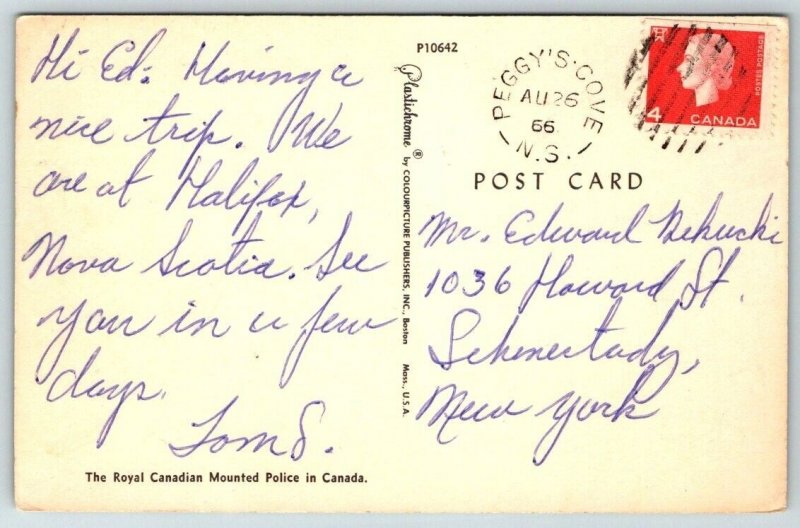 P10642
Hi Ed. Having a
nice trip. We
are at Halifax,
Nova Scotia. See
you in a few
days.
Tom S.
The Royal Canadian Mounted Police in Canada.
Plastichrome ® by COLOURPICTURE PUBLISHERS, INC., Boston Mass., U.S.A.
PEGGY'S·COVE
AU 26
66
N.S.
4
CANADA
POSTES POSTAGE
POST CARD
Mr. Edward
1036 Howard St.
Schenectady,
New York